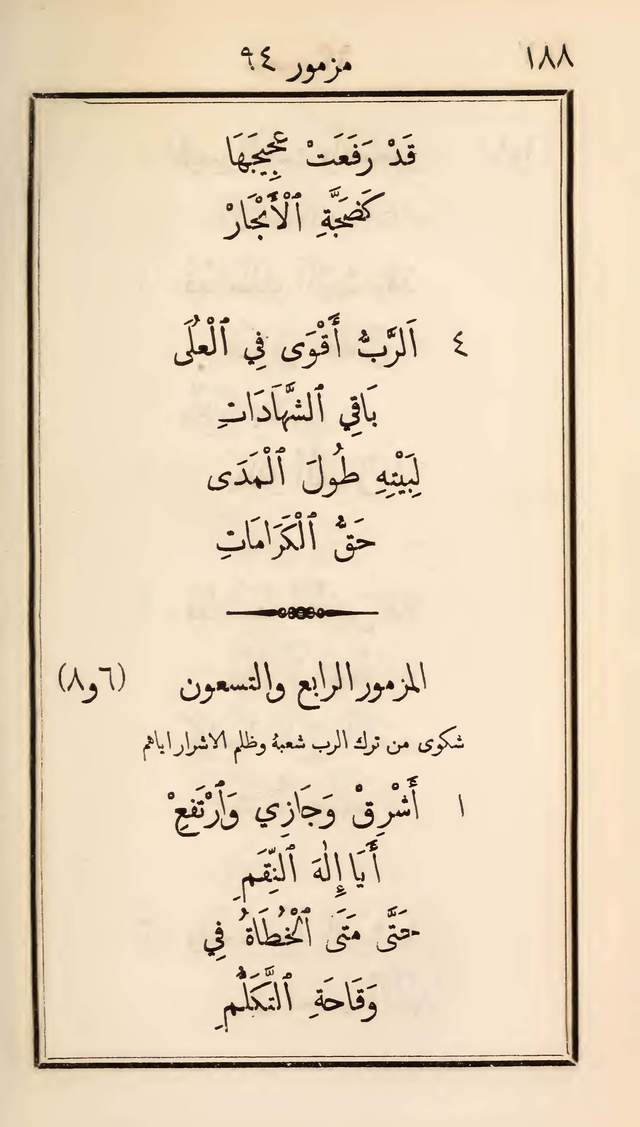 ١٨٨ مزمور ٩٤
قَدْ رَفَعَتْ عَجِيجَهَا
كَضَجَّةِ ٱلْأَبْحَارْ
٤ اَلرَّبُّ أَقْوَى فِي ٱلْعُلَى
بَاقِي ٱلشَّهَادَاتِ
لِبَيْتِهِ طُولَ ٱلْمَدَى
حَقُّ ٱلْكَرَامَاتِ
المزمور الرابع والتسعون (٦و٨)
شكوى من ترك الرب شعبهُ وظلم الاشرار اياهم
١ أَشْرِقْ وَجَازِي وَٱرْتَفِعْ
أَيَا إِلٰهَ ٱلنِّقَمِ
حَتَّى مَتَى ٱلْخُطَاةُ فِي
وَقَاحَةِ ٱلتَّكَلُّمِ